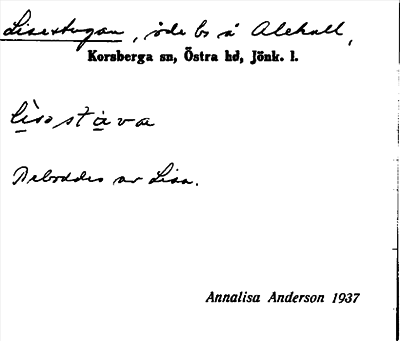 Lisestugan, öde bs å Alehall,
Korsberga sn, Östra hd, Jönk. l.
lisastava
Beboddes av Lisa.
Annalisa Anderson 1937